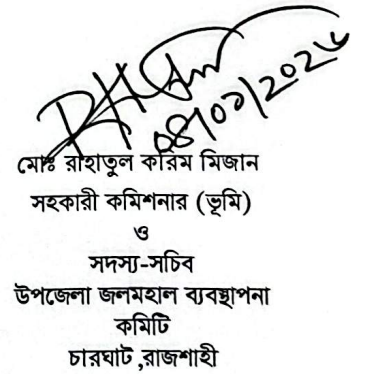 ০৪/০১/২০২৬
মোঃ রাহাতুল করিম মিজান
সহকারী কমিশনার (ভূমি)
ও
সদস্য-সচিব
উপজেলা জলমহাল ব্যবস্থাপনা
কমিটি
চারঘাট ,রাজশাহী